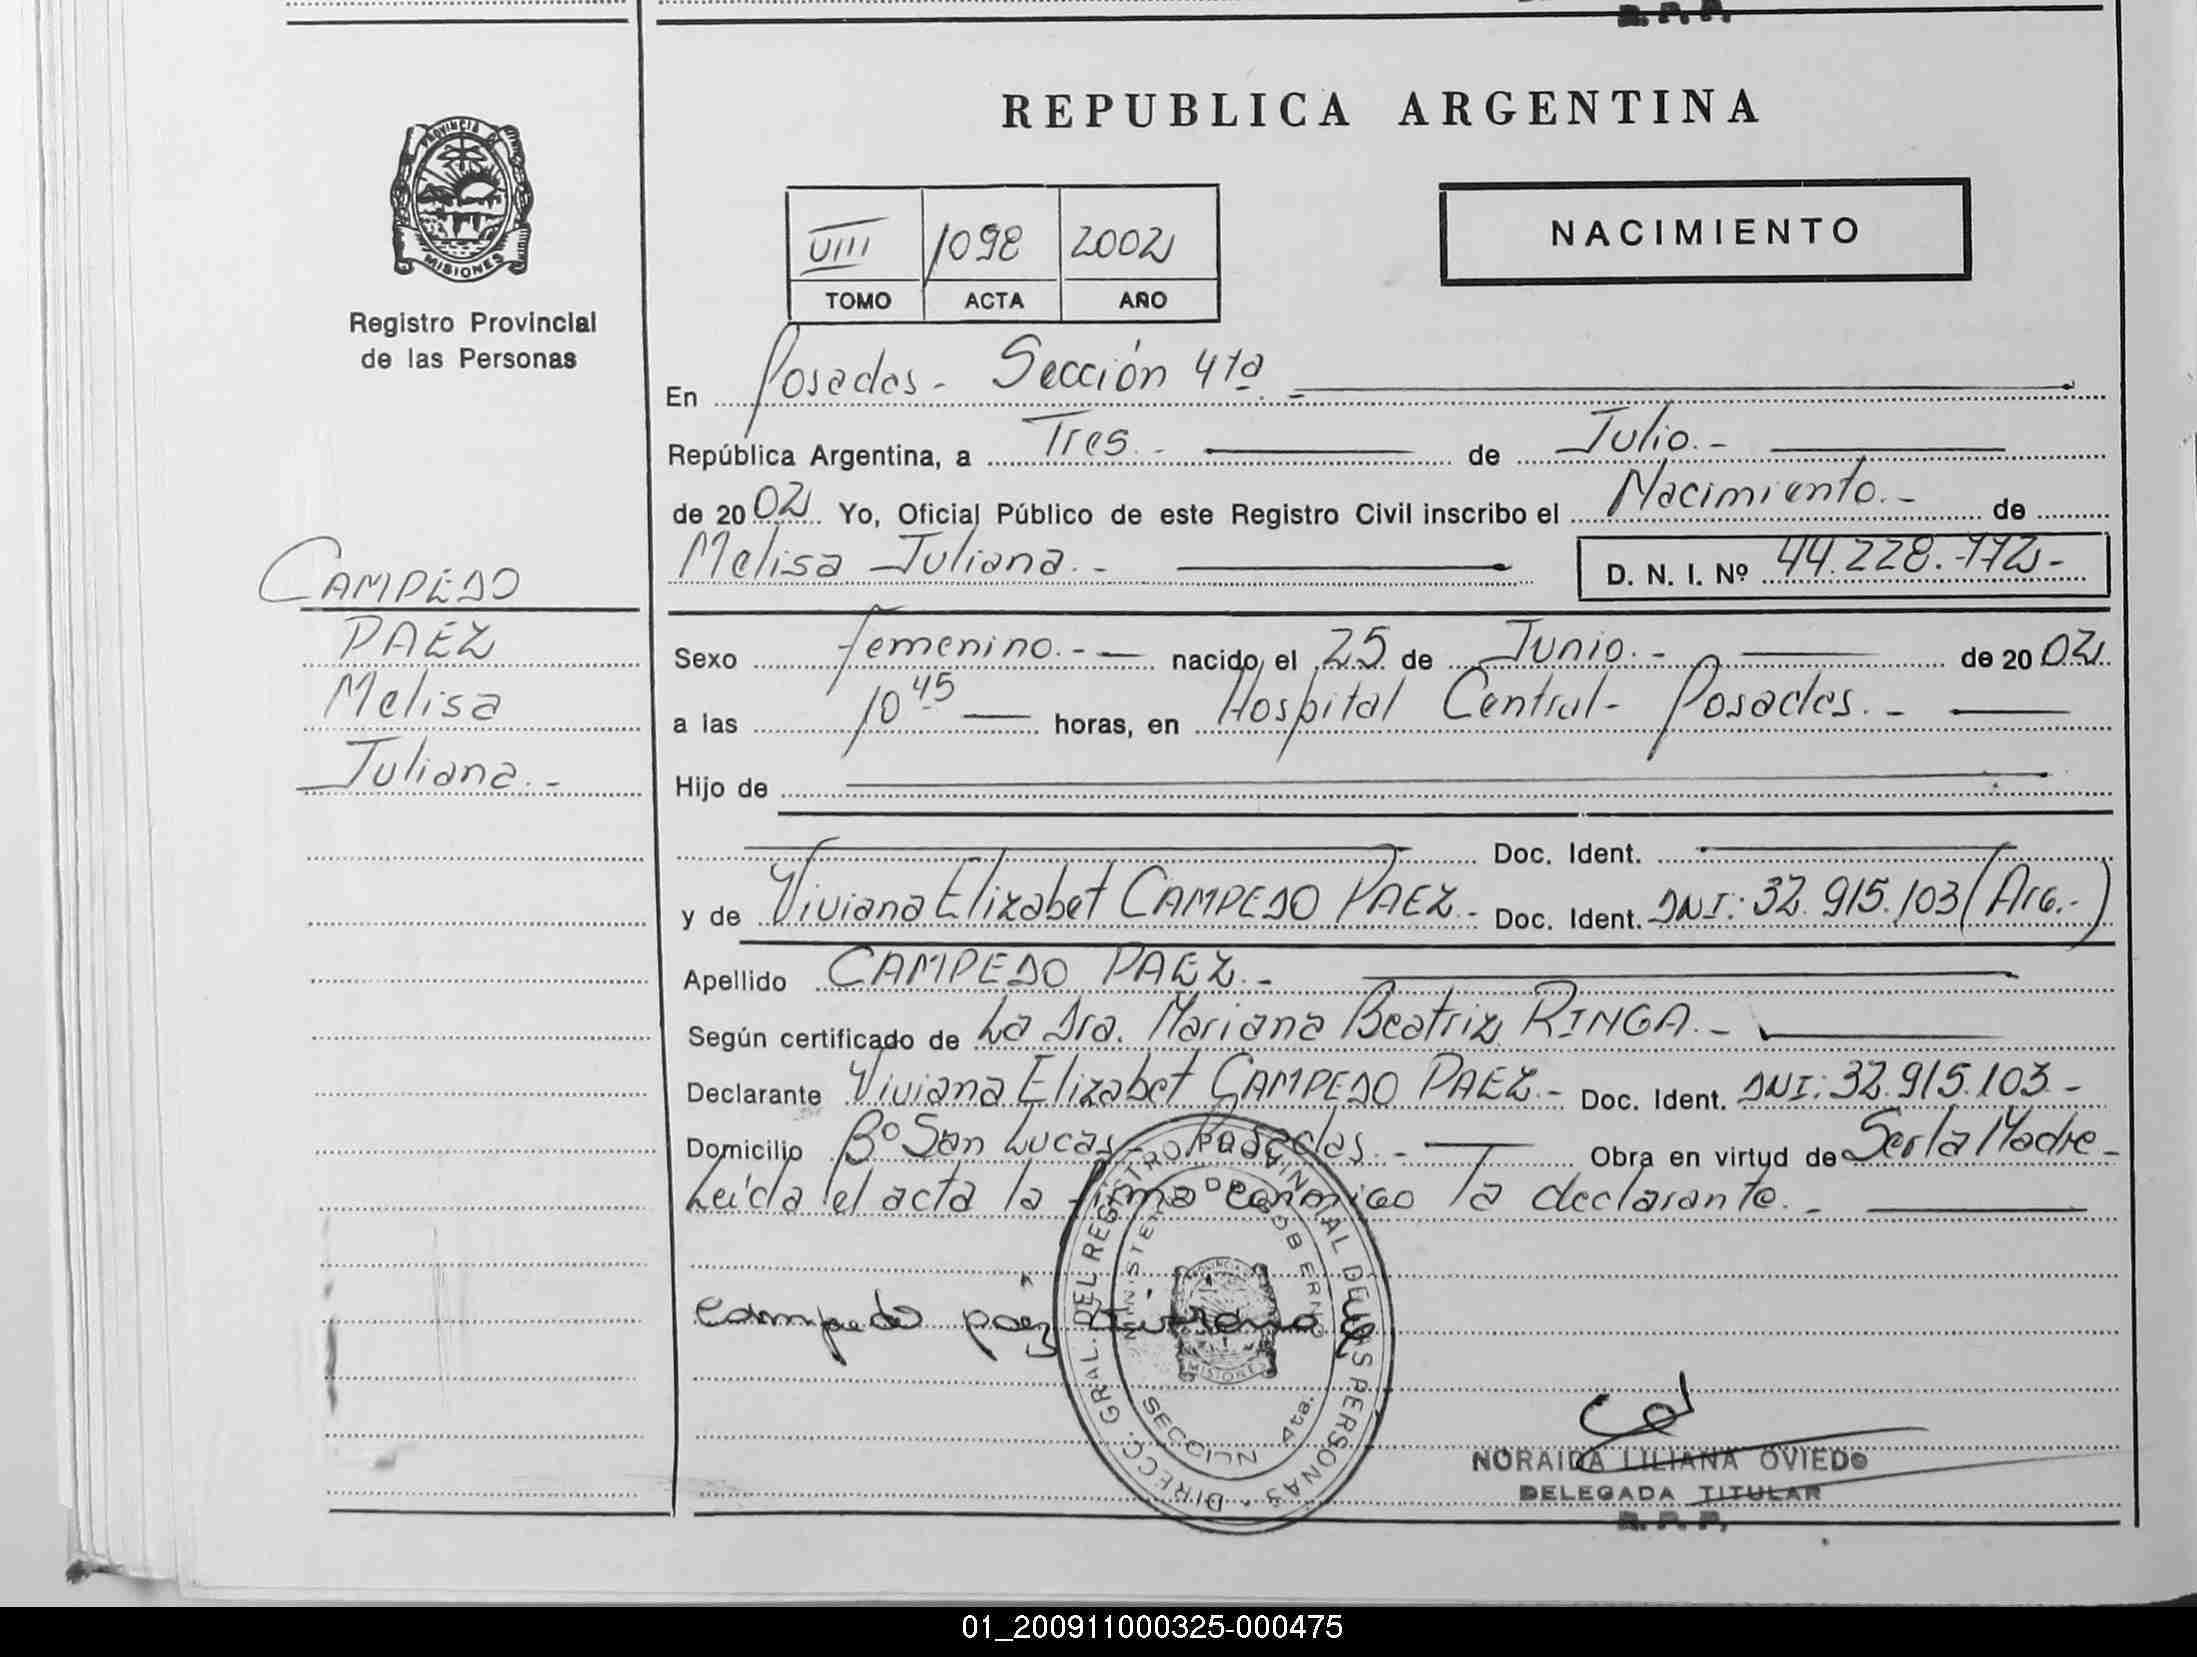 REPUBLICA ARGENTINA
PROVINCIA DE
MISIONES
Registro Provincial
de las Personas
NACIMIENTO
VIII 1098 2002
TOMO ACTA AÑO
En Posadas - Sección 4ta. -
República Argentina, a Tres. - de Julio. -
de 2002 Yo, Oficial Público de este Registro Civil inscribo el Nacimiento. - de
Melisa Juliana. - D. N. I. Nº 44.228.172 -
CAMPEDO
PAEZ
Melisa
Juliana. -
Sexo femenino. - nacido el 25 de Junio. - de 2002.
a las 10 45 horas, en Hospital Central - Posadas. -
Hijo de
Doc. Ident.
y de Viviana Elizabet CAMPEDO PAEZ - Doc. Ident. DNI: 32.915.103 (Arg. -)
Apellido CAMPEDO PAEZ. -
Según certificado de La Dra. Mariana Beatriz RINGA. -
Declarante Viviana Elizabet CAMPEDO PAEZ - Doc. Ident. DNI: 32.915.103 -
Domicilio Bº San Lucas - Posadas. - Obra en virtud de Ser la Madre -
Leída el acta la firma conmigo la declarante. -
campedo paez
DIRECC. GRAL. DEL REGISTRO PROVINCIAL DE LAS PERSONAS
MINISTERIO DE GOBIERNO
SECCION 4ta.
NORAIDA LILIANA OVIEDO
DELEGADA TITULAR
R. P. P.
01_200911000325-000475